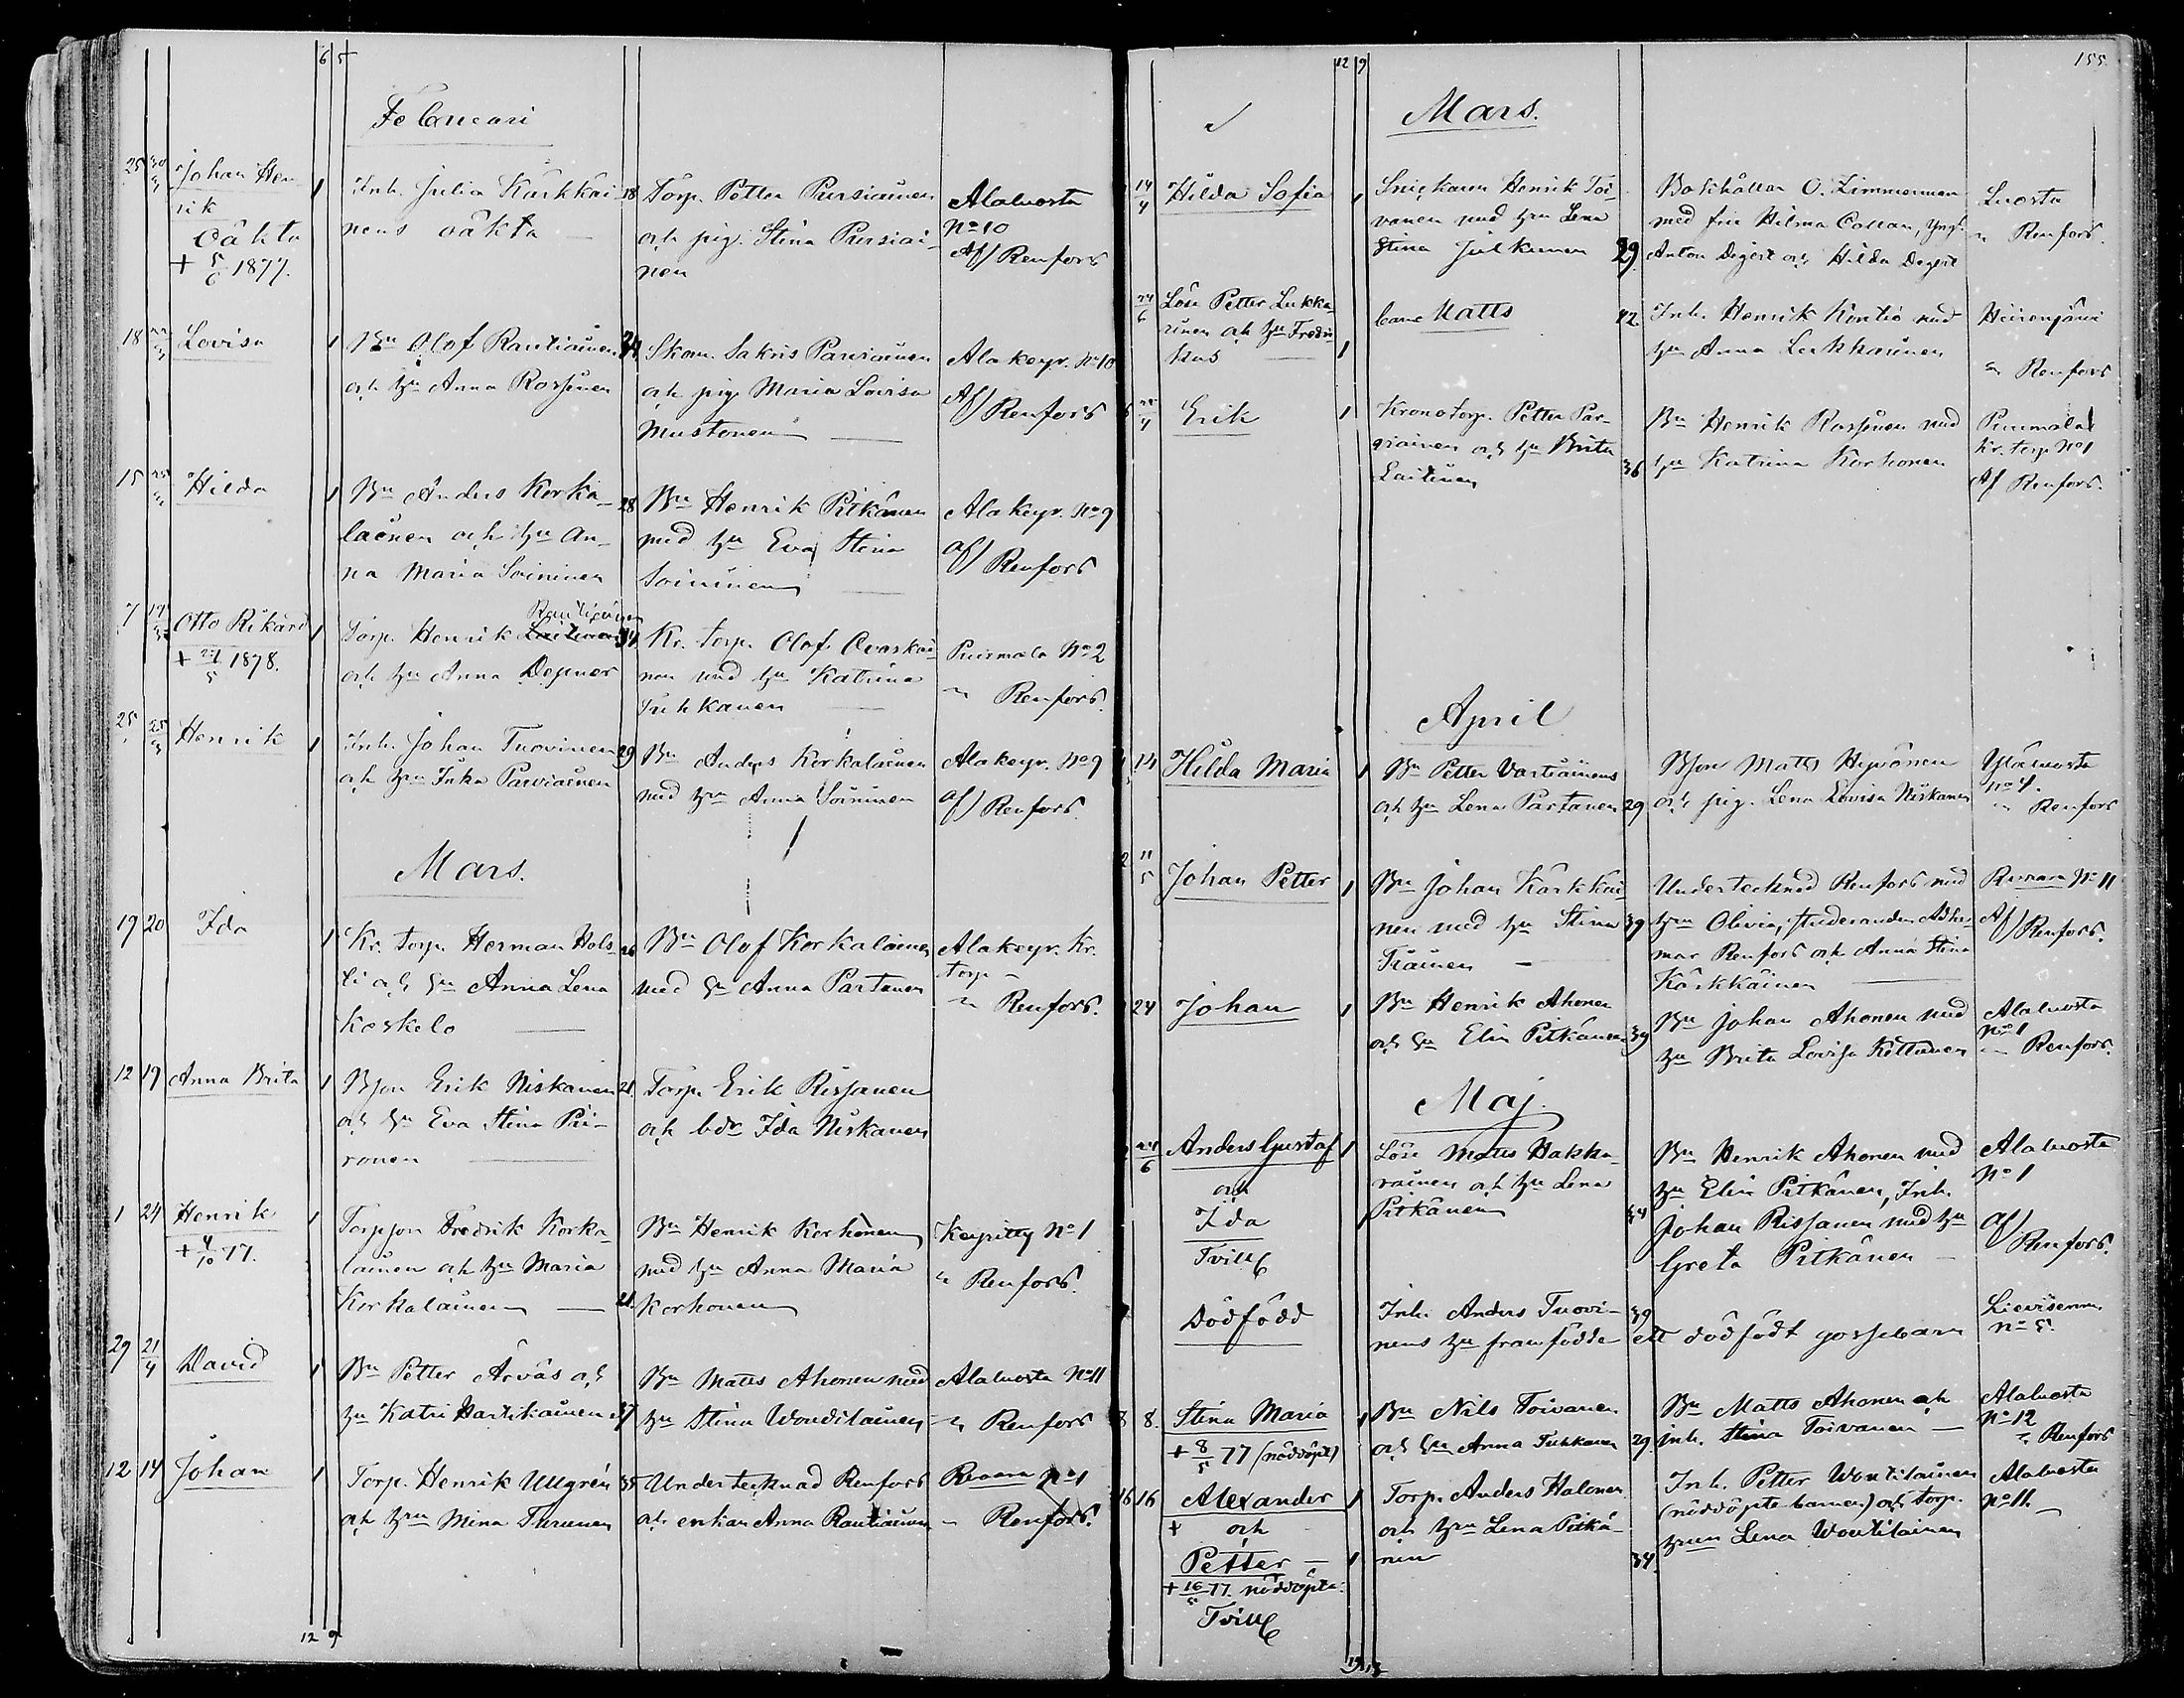 6 5
Februari
25 Johan Hen-
rik
oäkta
+ 5/6 1877.
1
Inh. Julia Kärkkäi-
nens oäkta
18
Torp. Petter Pursiainen
och pig. Stina Pursiai-
nen
Alaluosta
No 10
Af Renfors
18 Lovisa
1
Bn Olof Rautiainen
och hu Anna Rossinen
Skom. Sakris Parviainen
och pig. Maria Lovisa
Mustonen
Alakeyr. No 10
Af Renfors
15 Hilda
1
Bn Anders Korka-
lainen och hu An-
na Maria Soininen
28
Bn Henrik Pitkänen
med hu Eva Stina
Soininen
Alakeyr. No 9
Af Renfors
7 Otto Rikard
+ 1878.
1
Rautiainen
Torp. Henrik Laitinen
och hu Anna Degner
34
Kr. torp. Olof Ovaskai-
nen med hu Katrina
Tuhkanen
Puirmala No 2
" Renfors.
25 Henrik
1
Inh. Johan Tuovinen
och hu Inka Parviainen
29
Bn Anders Korkalainen
med hu Anna Soininen
Alakeyr. No 9
Af Renfors.
Mars.
19 20 Ida
1
Kr. torp. Herman Hols-
ti och hu Anna Lena
Koskelo
26
Bn Olof Korkalainen
med hu Anna Partanen
Alakeyr. Kr.
torp
" Renfors.
12 19 Anna Brita
1
Bson Erik Niskanen
och hu Eva Stina Pii-
ronen
21.
Torp. Erik Rissanen
och bdr Ida Niskanen
1 24 Henrik
+ 4/10 77.
1
Torpson Fredrik Korka-
lainen och hu Maria
Korkalainen
21.
Bn Henrik Korhonen
med hu Anna Maria
Korhonen
Keyritty No 1
" Renfors.
29 21/4 David
1
Bn Petter Arväs och
hu Katri Hartikainen
37
Bn Matts Ahonen med
hu Stina Woutilainen
Alaluosta No 11
" Renfors
12 14 Johan
1
Torp. Henrik Ullgrén
och hu Mina Turunen
35
Undertecknad Renfors
och enkan Anna Rautiainen
Revara No 1
" Renfors.
12 9
12 9
155
Mars.
14/4 Hilda Sofia
1
Snickaren Henrik Toi-
vanen med hu Lena
Stina Julkunen
29.
Bokhållar O. Zimmerman
med fru Hilma Collan, yngl.
Anton Degert och Hilda Degert
Luosta
" Renfors.
24/6 Löse Petter Lukka-
rinen och hu Fredri-
kas
1
barn Matts
42.
Inh. Henrik Kontio med
hu Anna Leskkainen
Heinenjärvi
" Renfors
Erik
1
Kronotorp. Petter Par-
viainen och hu Brita
Laitinen
36
Bn Henrik Rossinen med
hu Katrina Korhonen
Puirmala
Kr. torp No 1
Af Renfors.
April
14 Hilda Maria
1
Bn Petter Vartiainens
och hu Lena Partanen
29
Bson Matts Hyvönen
och pig. Lena Lovisa Niskanen
Yläluosta
No 4.
" Renfors
2 11/5 Johan Petter
1
Bn Johan Kärkkäi-
nen med hu Stina
Träinen
39
Undertecknad Renfors med
hu Olivia, studeranden Adhe-
mar Renfors och Anna Stina
Kärkkäinen
Revara No 11
Af Renfors.
24 Johan
1
Bn Henrik Ahonen
och hu Elin Pitkänen
39
Bn Johan Ahonen med
hu Brita Lovisa Kettunen
Alaluosta
No 1
" Renfors.
Maj.
24/6 Anders Gustaf
och
Ida
Tvill
1
1
Löse Matts Hakka-
rainen och hu Lena
Pitkänen
34
Bn Henrik Ahonen med
hu Elin Pitkänen, Inh.
Johan Rissanen med hu
Greta Pitkänen
Alaluosta
No 1
Af
Renfors.
Dödfödd
Inh. Anders Tuovi-
nens hu framfödde
39
ett dödfödt gossebarn
No 5.
8 8. Stina Maria
+ 8/5 77 (nöddöpt)
1
Bn Nils Toivanen
och hu Anna Tuhkanen
29.
Bn Matts Ahonen och
inh. Stina Toivanen
Alaluosta
No 12
" Renfors
16 16 Alexander
+ och
Petter
+ 16/5 77. nöddöpta.
Tvill
1
1
Torp. Anders Halonen
och hu Lena Pitkä-
nen
34.
Inh. Petter Woutilainen
(nöddöpte barnen) och torp.
hun Lena Woutilainen
Alaluosta
No 11.